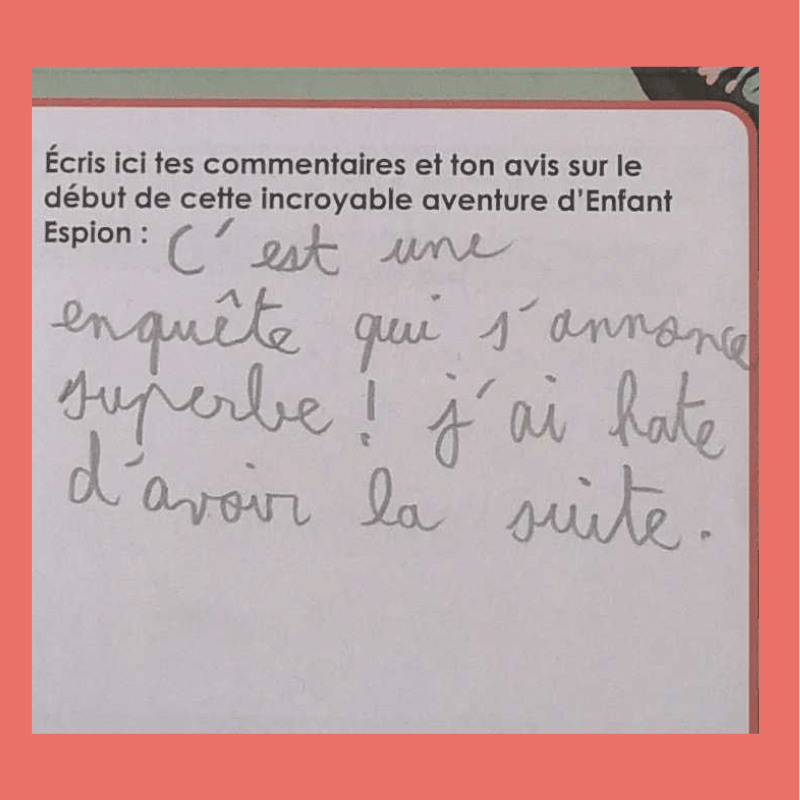 Écris ici tes commentaires et ton avis sur le
début de cette incroyable aventure d'Enfant
Espion : C'est une
enquête qui s'annonce
superbe ! j'ai hate
d'avoir la suite.